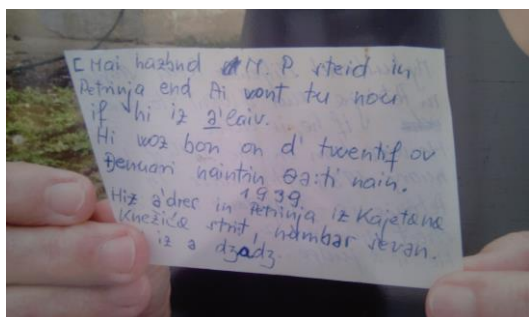 [ Mai hazbnd M. P steid in
Petrinja end Ai wont tu nou
if hi iz a'laiv.
Hi woz bon on d' twentif ov
Đenuari naintin θə:ti nain.
1939.
Hiz a'dres in Petrinja iz Kajetana
Knežića strit, nambar sevan.
iz a dʒadʒ.